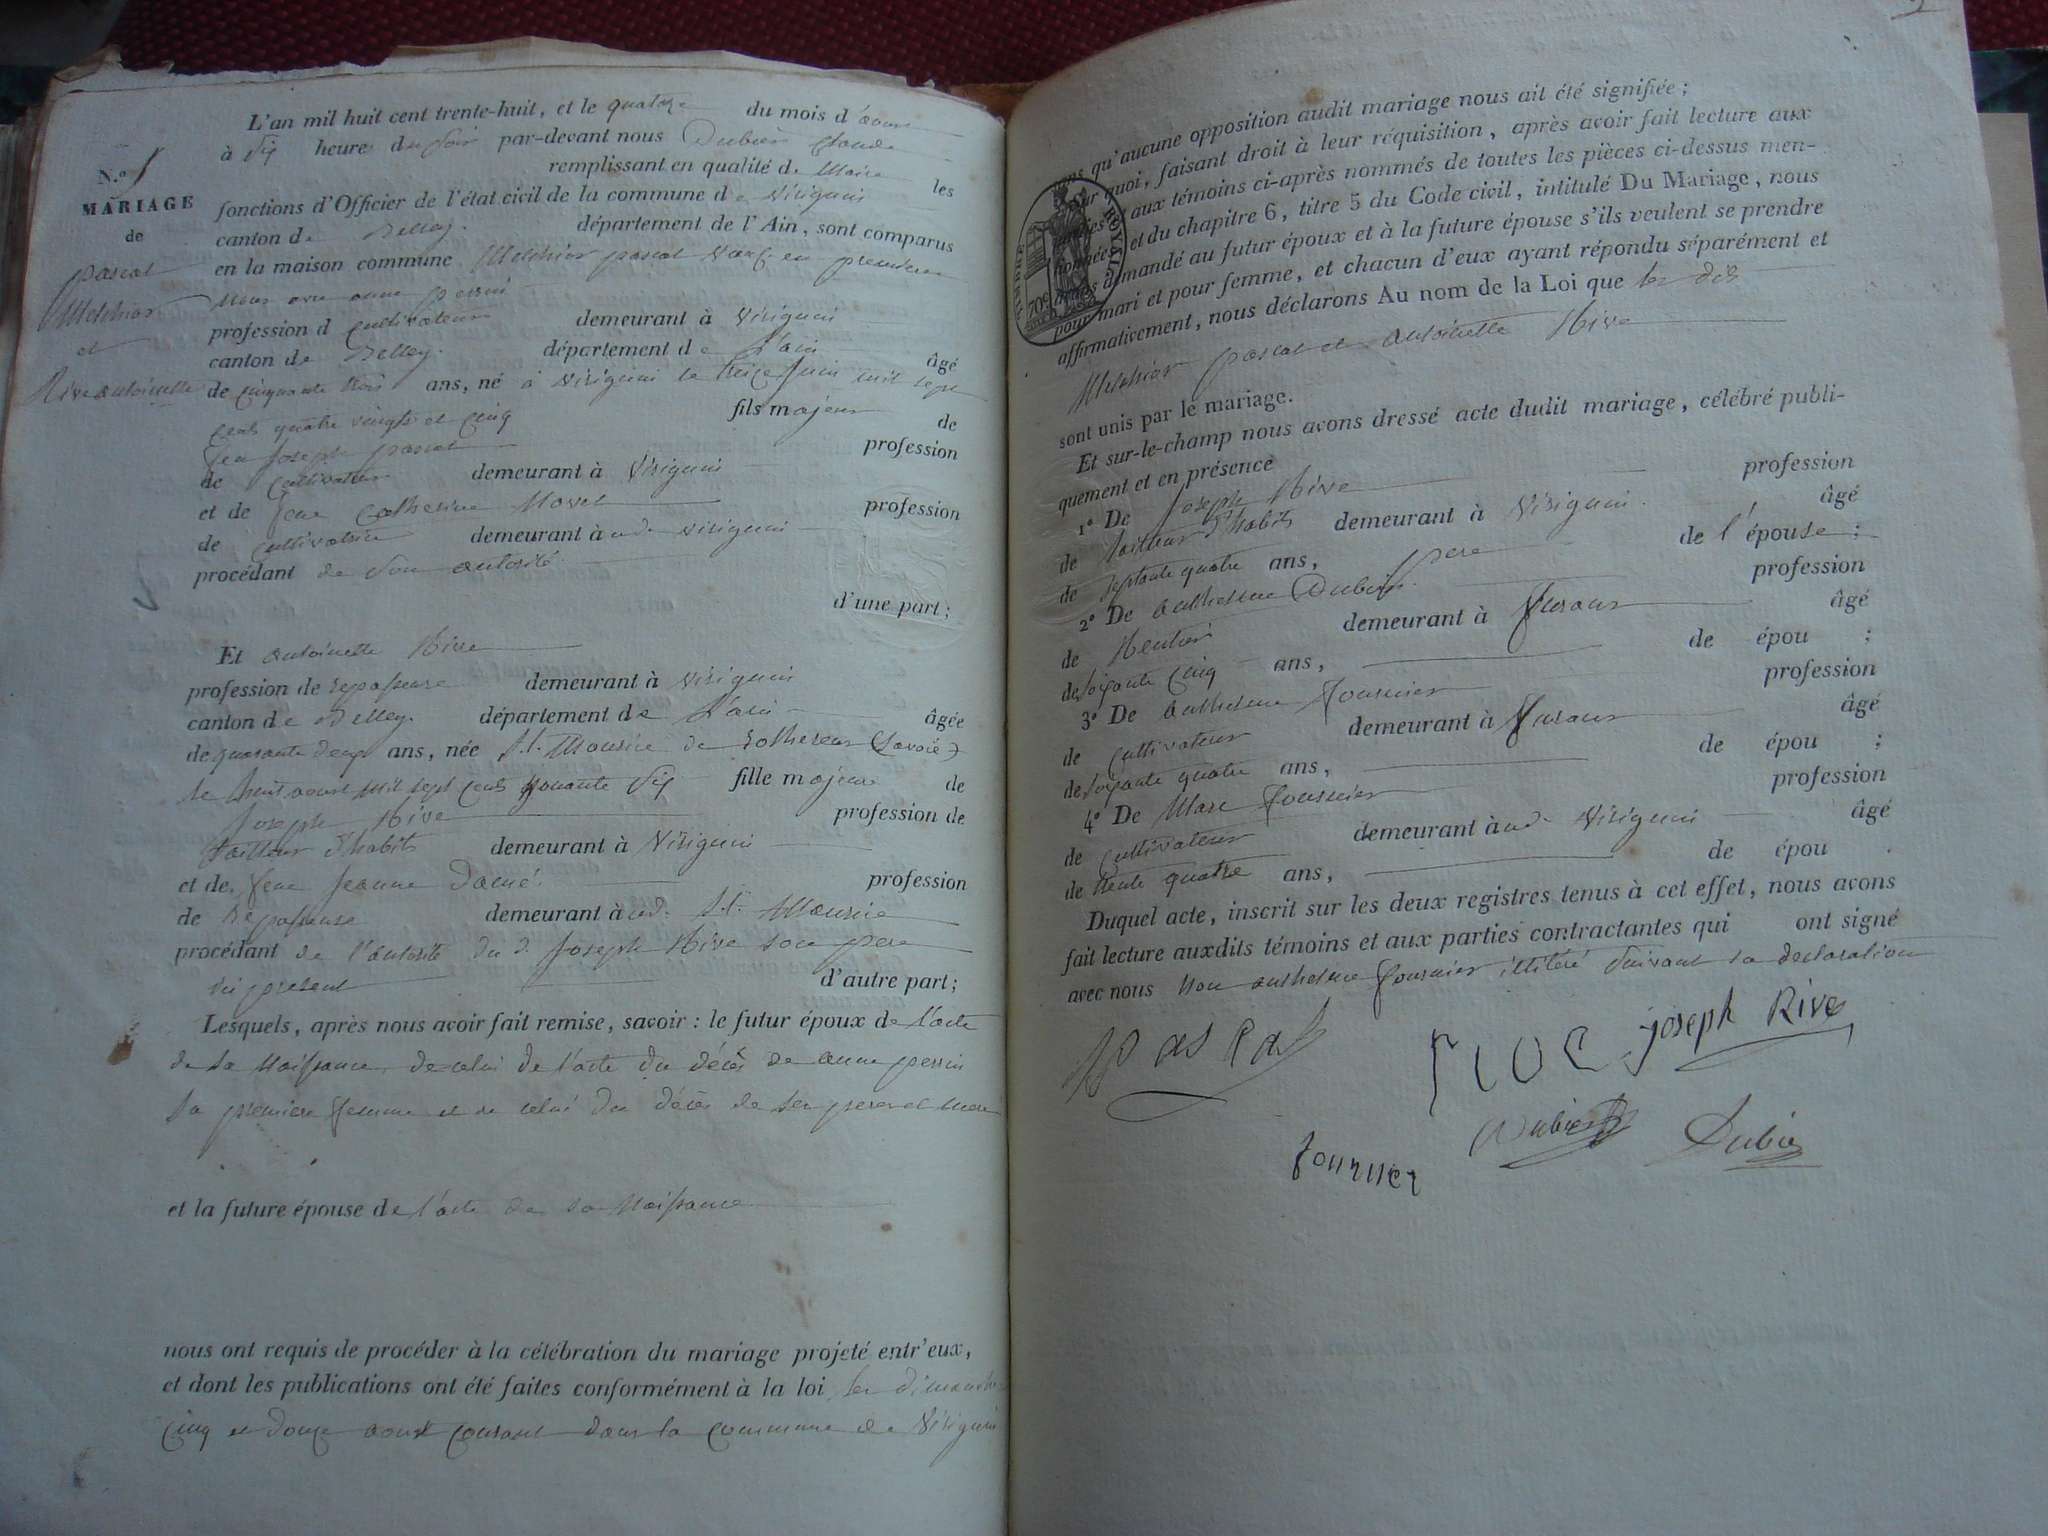 L'an mil huit cent trente-huit, et le quatorze du mois d'aoust
à Six heures du soir par-devant nous Dubier Claude
remplissant en qualité de Maire les
fonctions d'Officier de l'état civil de la commune de Virignin
canton de Belley. département de l'Ain, sont comparus
en la maison commune Melchior pascal veuf en premieres
anne perrin
profession d cultivateur demeurant à Virignin
canton de Belley. département de l'ain âgé
de cinquante trois ans, né à Virignin le treize juin mil sept
cent quatre vingts et cinq fils majeur de
feu Joseph pascal profession
de cultivateur demeurant à Virignin
et de feue Catherine Morel profession
de cultivatrice demeurant à ud. Virignin
procédant de son autorité
d'une part;
N.o
MARIAGE
de
pascal
Melchior
et
Rive antoinette
Et antoinette Rive
profession de repasseuse demeurant à Virignin
canton de Belley. département de l'ain âgée
de quarante deux ans, née St. Maurice de Rotherens (Savoie)
le huit aoust mil sept cent nonante Six fille majeure de
Joseph Rive profession de
tailleur d'habits demeurant à Virignin
et de feue Jeanne profession
de repasseuse demeurant à ud. St. Maurice
procédant de l'autorité du d. Joseph Rive son pere
ici present d'autre part;
Lesquels, après nous avoir fait remise, savoir : le futur époux de l'acte
de sa Naissance, de celui de l'acte du décès de anne perrin
sa premiere femme et de celui du décès de ses pere et mere
et la future épouse de l'acte de sa Naissance
nous ont requis de procéder à la célébration du mariage projeté entr'eux,
et dont les publications ont été faites conformément à la loi les dimanches
cinq et douze aoust courant dans la commune de Virignin
qu'aucune opposition audit mariage nous ait été signifiée ;
quoi, faisant droit à leur réquisition, après avoir fait lecture aux
aux témoins ci-après nommés de toutes les pièces ci-dessus men-
et du chapitre 6, titre 5 du Code civil, intitulé Du Mariage, nous
demandé au futur époux et à la future épouse s'ils veulent se prendre
pour mari et pour femme, et chacun d'eux ayant répondu séparément et
affirmativement, nous déclarons Au nom de la Loi que les dits
Melchior pascal et antoinette Rive
sont unis par le mariage.
Et sur-le-champ nous avons dressé acte dudit mariage, célébré publi-
quement et en présence
1o De Joseph Rive profession
de tailleur d'habits demeurant à Virignin. âgé
de septante quatre ans, pere de l'épouse ;
2o De anthelme Dubier. profession
de Rentier demeurant à âgé
de soixante cinq ans, de épou ;
3o De anthelme fournier profession
de cultivateur demeurant à âgé
de soixante quatre ans, de épou ;
4o De Marc fournier profession
de cultivateur demeurant à ud. Virignin âgé
de trente quatre ans, de épou .
Duquel acte, inscrit sur les deux registres tenus à cet effet, nous avons
fait lecture auxdits témoins et aux parties contractantes qui ont signé
avec nous non anthelme fournier illitéré suivant sa declaration
Pascal
Joseph Rive
Dubier
Dubier
fournier